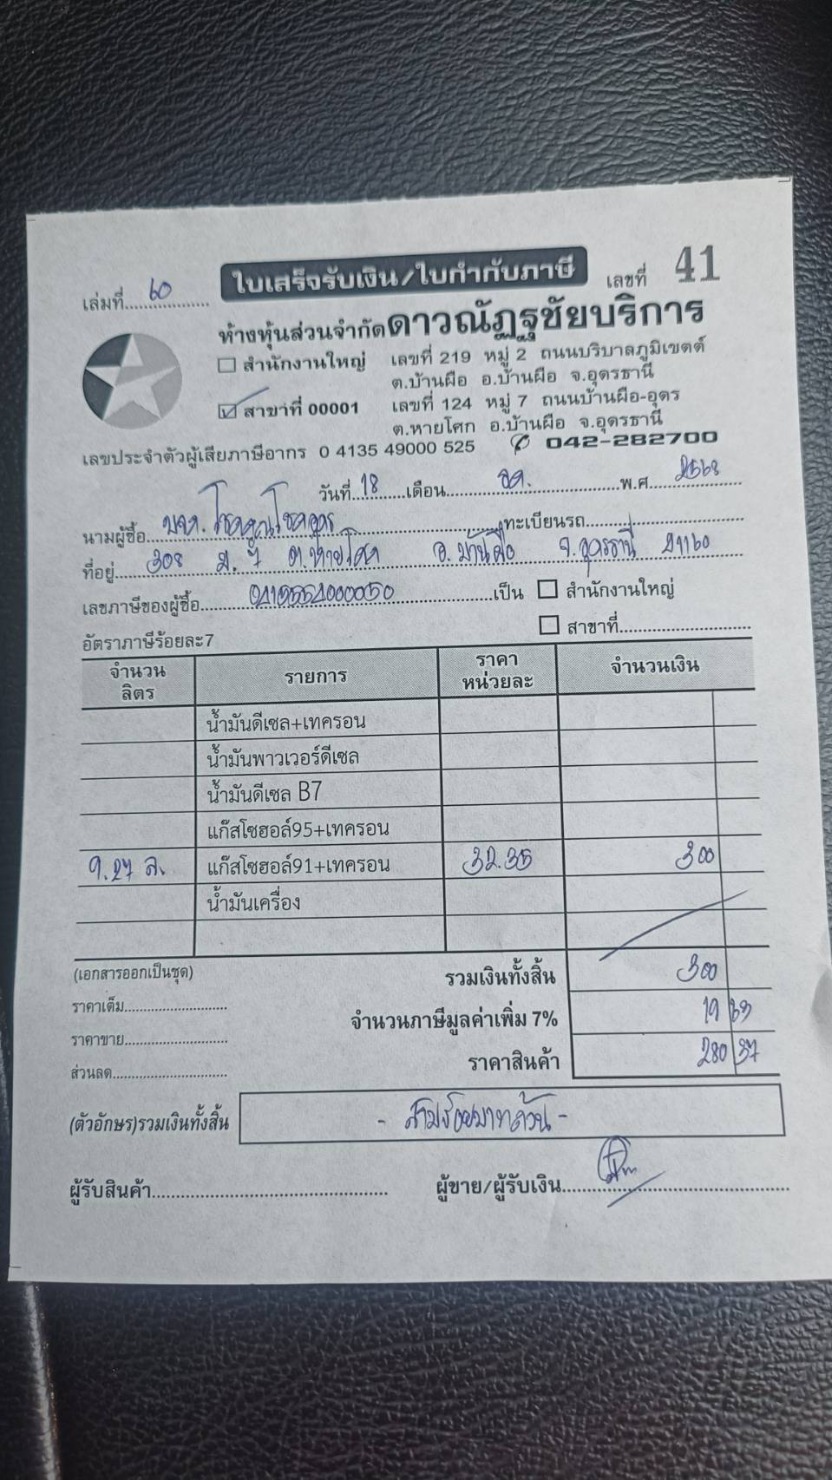 เล่มที่ 60 ใบเสร็จรับเงิน/ใบกำกับภาษี เลขที่ 41
ห้างหุ้นส่วนจำกัดดาวณัฏฐชัยบริการ
สำนักงานใหญ่ เลขที่ 219 หมู่ 2 ถนนบริบาลภูมิเขตต์
ต.บ้านผือ อ.บ้านผือ จ.อุดรธานี
สาขาที่ 00001 เลขที่ 124 หมู่ 7 ถนนบ้านผือ-อุดร
ต.หายโศก อ.บ้านผือ จ.อุดรธานี
เลขประจำตัวผู้เสียภาษีอากร 0 4135 49000 525 ✆ 042-282700
วันที่ 18 เดือน พ.ศ. 2568
นามผู้ซื้อ ทะเบียนรถ
ที่อยู่ 308 ม.7 ต.หายโศก อ.บ้านผือ จ.อุดรธานี 41160
เลขภาษีของผู้ซื้อ เป็น สำนักงานใหญ่
สาขาที่
อัตราภาษีร้อยละ7
จำนวน ลิตร รายการ ราคา หน่วยละ จำนวนเงิน
น้ำมันดีเซล+เทครอน
น้ำมันพาวเวอร์ดีเซล
น้ำมันดีเซล B7
แก๊สโซฮอล์95+เทครอน
9.27 ล. แก๊สโซฮอล์91+เทครอน 32.35 300
น้ำมันเครื่อง
(เอกสารออกเป็นชุด) รวมเงินทั้งสิ้น 300
ราคาเต็ม จำนวนภาษีมูลค่าเพิ่ม 7% 19 63
ราคาขาย ราคาสินค้า 280 37
ส่วนลด
(ตัวอักษร)รวมเงินทั้งสิ้น - สามร้อยบาทถ้วน -
ผู้รับสินค้า ผู้ขาย/ผู้รับเงิน